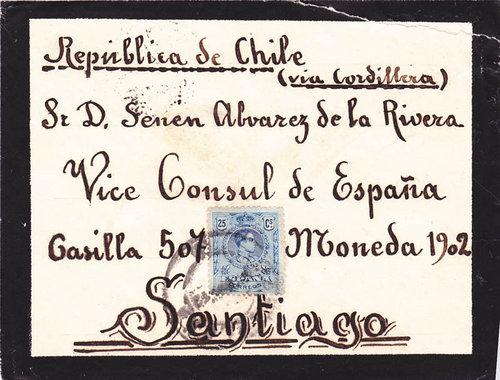 República de Chile
(via Cordillera)
Sr D. Senen Alvarez de la Rivera
Vice Consul de España
25 Cs
Casilla 507 Moneda 1902
CORREOS
Santiago